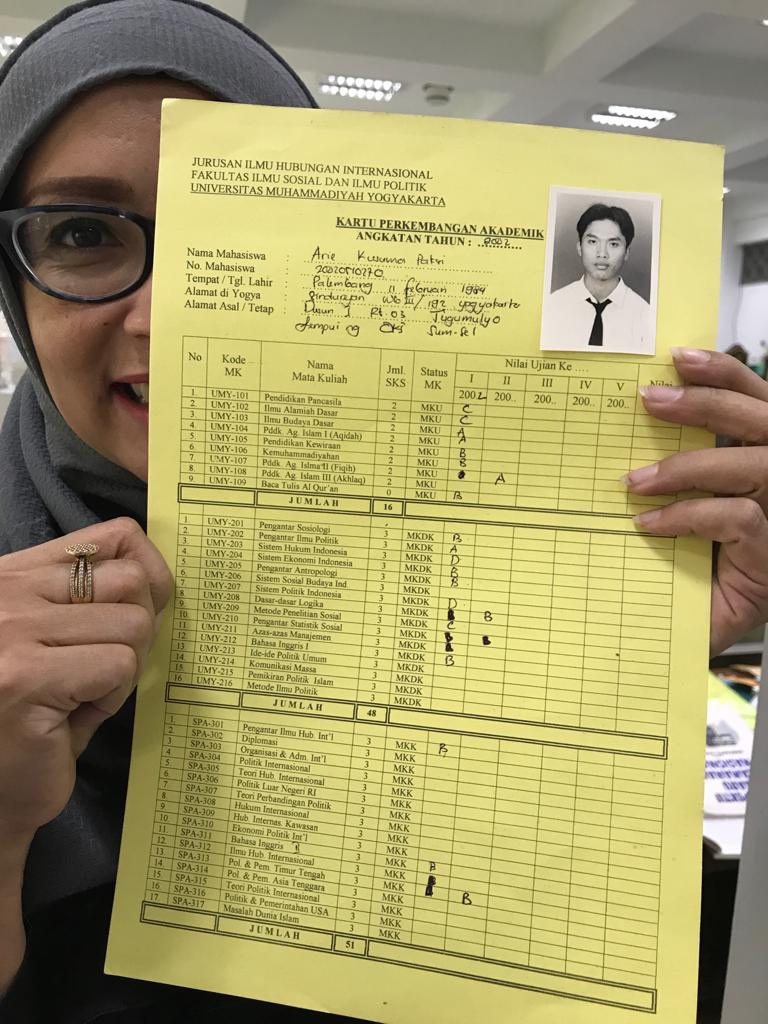 JURUSAN ILMU HUBUNGAN INTERNASIONAL
FAKULTAS ILMU SOSIAL DAN ILMU POLITIK
UNIVERSITAS MUHAMMADIYAH YOGYAKARTA
KARTU PERKEMBANGAN AKADEMIK
ANGKATAN TAHUN : 2002
Nama Mahasiswa : Arie Kusuma Paksi
No. Mahasiswa : 20020510270
Tempat / Tgl. Lahir : Palembang 11 februari 1984
Alamat di Yogya : WB III/192 yogyakarta
Alamat Asal / Tetap : Dusun I Rt. 03 Tugumulyo
Lempuing OKI Sum-Sel
No Kode MK Nama Mata Kuliah Jml. SKS Status MK Nilai Ujian Ke .... Nilai
I II III IV V
2002 200.. 200.. 200.. 200..
1. UMY-101 Pendidikan Pancasila 2 MKU C
2. UMY-102 Ilmu Alamiah Dasar 2 MKU C
3. UMY-103 Ilmu Budaya Dasar 2 MKU A
4. UMY-104 Pddk. Ag. Islam I (Aqidah) 2 MKU A
5. UMY-105 Pendidikan Kewiraan 2 MKU B
6. UMY-106 Kemuhammadiyahan 2 MKU B
7. UMY-107 Pddk. Ag. Islma II (Fiqih) 2 MKU A
8. UMY-108 Pddk. Ag. Islam III (Akhlaq) 2 MKU
9 UMY-109 Baca Tulis Al Qur'an 0 MKU B
JUMLAH 16
1. UMY-201 Pengantar Sosiologi 3 MKDK B
2. UMY-202 Pengantar Ilmu Politik 3 MKDK A
3. UMY-203 Sistem Hukum Indonesia 3 MKDK D
4. UMY-204 Sistem Ekonomi Indonesia 3 MKDK B
5. UMY-205 Pengantar Antropologi 3 MKDK B
6. UMY-206 Sistem Sosial Budaya Ind 3 MKDK
7. UMY-207 Sistem Politik Indonesia 3 MKDK D
8. UMY-208 Dasar-dasar Logika 3 MKDK B
9. UMY-209 Metode Penelitian Sosial 3 MKDK C
10. UMY-210 Pengantar Statistik Sosial 3 MKDK
11. UMY-211 Azas-azas Manajemen 3 MKDK
12. UMY-212 Bahasa Inggris I 3 MKDK B
13. UMY-213 Ide-ide Politik Umum 3 MKDK
14. UMY-214 Komunikasi Massa 3 MKDK
15. UMY-215 Pemikiran Politik Islam 3 MKDK
16 UMY-216 Metode Ilmu Politik 3 MKDK
JUMLAH 48
1. SPA-301 Pengantar Ilmu Hub. Int'l 3 MKK B
2. SPA-302 Diplomasi 3 MKK
3. SPA-303 Organisasi & Adm. Int'l 3 MKK
4. SPA-304 Politik Internasional 3 MKK
5. SPA-305 Teori Hub. Internasional 3 MKK
6. SPA-306 Politik Luar Negeri RI 3 MKK
7. SPA-307 Teori Perbandingan Politik 3 MKK
8. SPA-308 Hukum Internasional 3 MKK
9. SPA-309 Hub. Internas. Kawasan 3 MKK
10. SPA-310 Ekonomi Politik Int'l 3 MKK
11. SPA-311 Bahasa Inggris 3 MKK B
12. SPA-312 Ilmu Hub. Internasional 3 MKK
13. SPA-313 Pol. & Pem. Timur Tengah 3 MKK B
14. SPA-314 Pol. & Pem. Asia Tenggara 3 MKK
15. SPA-315 Teori Politik Internasional 3 MKK
16. SPA-316 Politik & Pemerintahan USA 3 MKK
17. SPA-317 Masalah Dunia Islam 3 MKK
JUMLAH 51